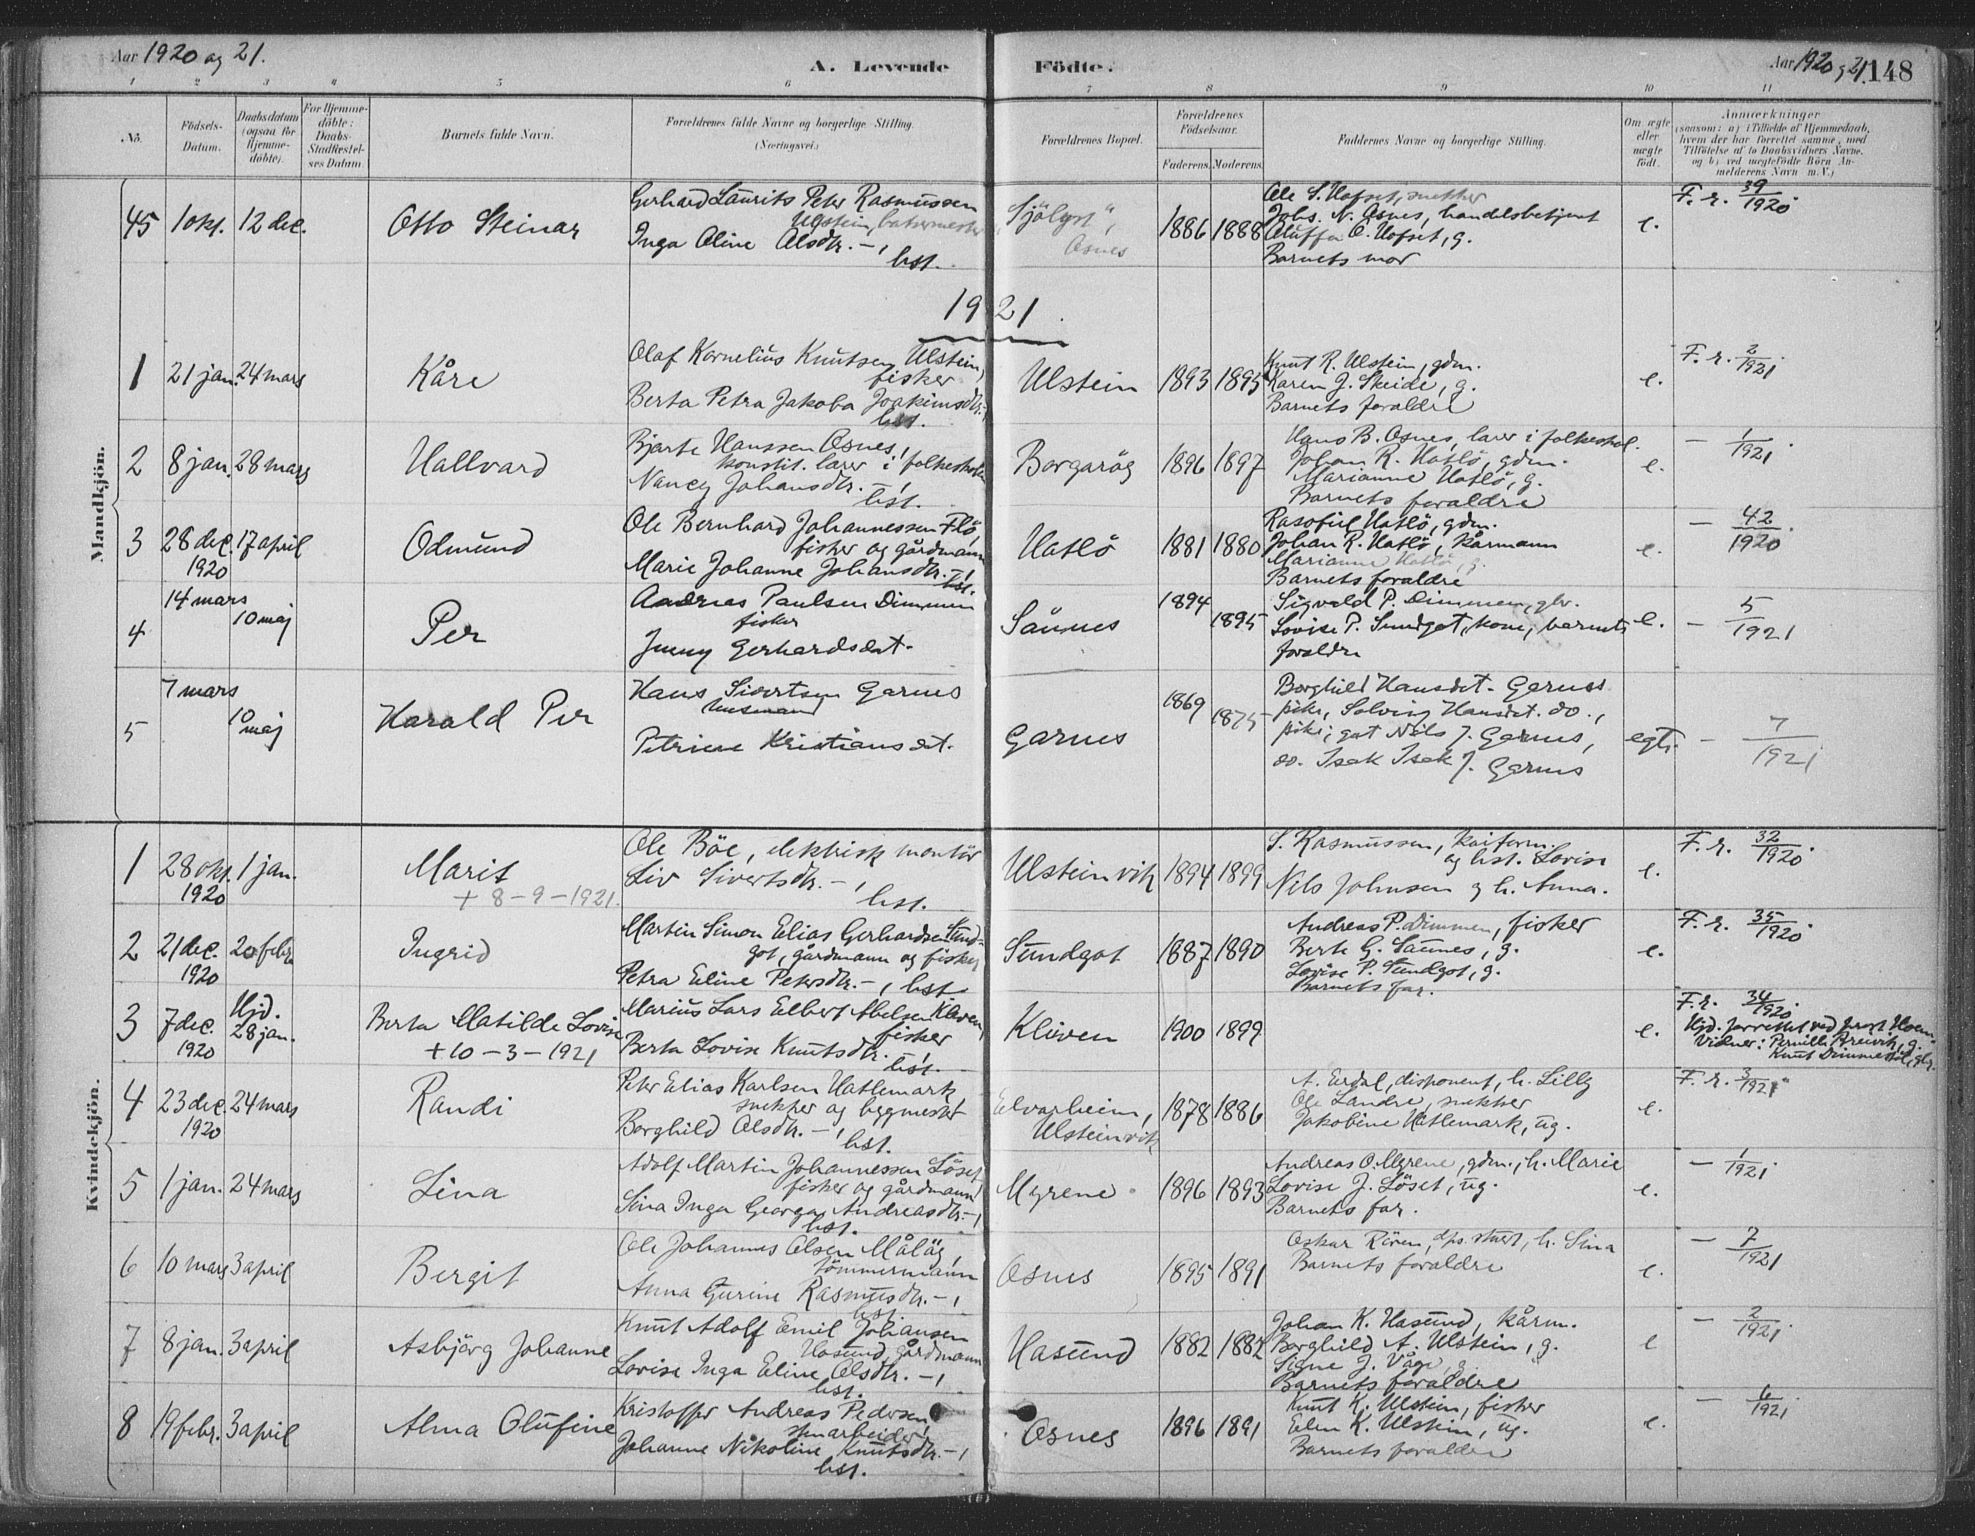 Aar 1920 og 21.
A. Levende Födte.
Aar 1920 og 21. 148
1 2 3 4 5 6 7 8 9 10 11
No.
Födsels-
Datum.
Daabsdatum
(ogsaa for
Hjemme-
döbte).
For Hjemme-
döbte:
Daabs-
Stadfæstel-
ses Datum
Barnets fulde Navn.
Forældrenes fulde Navne og borgerlige Stilling.
(Næringsvei.)
Forældrenes Bopæl.
Forældrenes
Födselsaar.
Faderens. Moderens.
Faddernes Navne og borgerlige Stilling.
Om ægte
eller
uægte
født.
Anmærkninger
(saasom: a) i Tilfælde af Hjemmedaab,
hvem der har forrettet samme, med
Tilföielse af to Daabsvidners Navne,
og b) ved uægtefödte Börn An-
melderens Navn m. V.)
Mandkjön.
45 1 okt. 12 dec. Otto Steinar
Gerhard Laurits Peter Rasmussen
Ulstein,
Inga Oline Olsdtr. –,
hst.
"Sjölyst",
Osnes
1886 1888
Ole S. Hofset, snekker
Johs. N. Osnes, handelsbetjent
Oluffa O. Hofset, g.
Barnets mor
e.
F. r. 39/1920.
1921
1 21 jan. 24 mars Kåre
Olaf Kornelius Knutsen Ulstein,
fisker
Berta Petra Jakoba Joakimsdtr. –,
hst.
Ulstein 1893 1895
Knut R. Ulstein, gdm.
Karen J. Skeide, g.
Barnets foraldre
e.
F. r. 2/1921.
2 8 jan. 28 mars Hallvard
Bjarte Hanssen Osnes,
konstit. lærer i folkeskolen
Nancy Johansdtr. –,
hst.
Borgarög 1896 1897
Hans B. Osnes, lærer i folkeskol.
Johan R. Hatlö, gdm.
Marianne Hatlö, g.
Barnets foraldre
e.
– 1/1921.
3 28 dec. 1920 17 april Odmund
Ole Bernhard Johannessen Flö,
fisker og gårdmann
Marie Johanne Johansdtr. –,
hst.
Hatlö 1881 1880
Rasofiel Hatlö, gdm.
Johan R. Hatlö, kårmann
Marianne Hatlö, g.
Barnets foraldre
e.
– 42/1920.
4 14 mars 10 maj Per
Andreas Paulsen Dimmen
fisker
Jenny Gerhardsdat.
Saunes 1894 1895
Sigvald P. Dimmen, gbr.
Lovise P. Sundgot, kone, barnets
foraldre
e.
– 5/1921
5 7 mars 10 maj Harald Per
Hans Sivertsen Garnes
husmand
Petrine Kristiansdat.
Garnes 1869 1875
Borghild Hansdat. Garnes
pike, Solveig Hansdat. do.,
pike; gut Nils J. Garnes,
do. Isak Isak J. Garnes
egte
– 7/1921
Kvindekjön.
1 28 okt. 1920 1 jan. Marit
+ 8 – 9 – 1921.
Ole Böe, elektrisk montör
Liv Sivertsdtr. –,
hst.
Ulsteinvik 1894 1899
S. Rasmussen, kaiform.
og hst. Lovise
Nils Johnsen og h. Anna.
e.
F. r. 32/1920.
2 21 dec. 1920 20 febr. Ingrid
Martin Simon Elias Gerhardsen Sund-
got, gårdmann og fisker
Petra Eline Petersdtr. –, hst.
Sundgot 1887 1890
Andreas P. Dimmen, fisker
Berte G. Saunes, g.
Lovise P. Sundgot, g.
Barnets far.
e.
F. r. 35/1920.
3 7 dec. 1920 Hjd. 28 jan. Berta Matilde Lovise
+ 10 – 3 – 1921
Marius Lars Elbert Abelsen Kleven,
fisker
Berta Lovise Knutsdtr. –,
hst.
Kleven 1900 1899
e.
F. r. 34/1920.
Hjd. forrettet ved prest Hoem
Vidner: Pernille Breivik, g.
Knut Dimmen, gbr.
4 23 dec. 1920 24 mars Randi
Peter Elias Karlsen Hatlemark
snekker og byggmester
Borghild Olsdtr. –,
hst.
Elvarheim,
Ulsteinvik
1878 1886
A. Eidal, disponent, h. Lilly
Ole Landre, snekker
Jakobine Hatlemark, ug.
e.
F. r. 3/1921
5 1 jan. 24 mars Lina
Adolf Martin Johannessen Löset,
fisker og gårdmann
Sina Inga Georga Andreasdtr. –,
hst.
Myrene 1896 1893
Andreas O. Myrene, gdm., h. Marie
Lovise J. Löset, ug.
Barnets far.
e.
– 1/1921.
6 10 mars 3 april Bergit
Ole Johannes Olsen Måløy,
tömmermann
Anna Gurine Rasmusdtr. –,
hst.
Osnes 1895 1891
Oskar Rören, h. Sina
Barnets foraldre
e.
– 7/1921
7 8 jan. 3 april Asbjörg Johanne
Knut Adolf Emil Johansen
Hasund, gårdmann
Lovise Inga Eline Olsdtr. –,
hst.
Hasund 1882 1882
Johan K. Hasund, kårm.
Borghild A. Ulstein, g.
Signe J. Våge, g.
Barnets foraldre
e
– 2/1921.
8 19 febr. 3 april Alma Olufine
Kristoffer Andreas Pedersen,
stenarbeider
Johanne Nikoline Knutsdtr. –,
hst.
Osnes 1896 1891
Knut K. Ulstein, fisker
Elen K. Ulstein, ug.
Barnets foraldre
e.
– 6/1921.